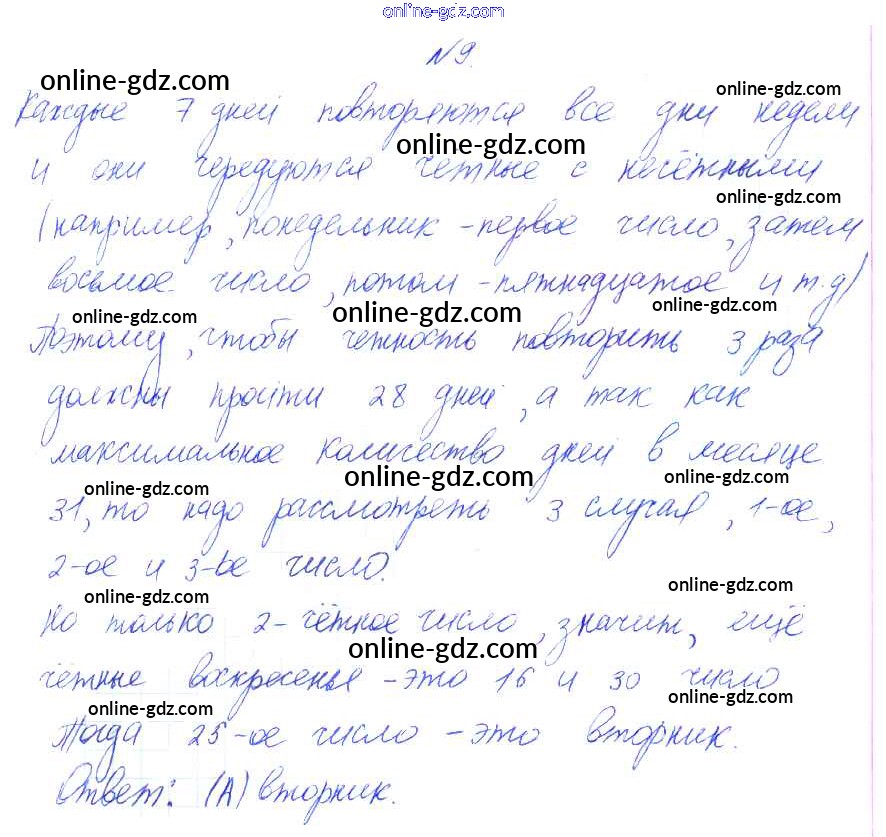 online-gdz.com
№9.
online-gdz.com
online-gdz.com
Каждые 7 дней повторяются все дни недели
online-gdz.com
и они чередуются четные с несчётными
online-gdz.com
(например, понедельник - первое число, затем
восьмое число, потом - пятнадцатое и т.д)
online-gdz.com
online-gdz.com
online-gdz.com
Поэтому, чтобы четность повторить 3 раза
должны пройти 28 дней, а так как
максимальное количество дней в месяце
online-gdz.com
online-gdz.com
online-gdz.com
31, то надо рассмотреть 3 случая, 1-ое,
2-ое и 3-ье число.
online-gdz.com
online-gdz.com
Но только 2 - чётное число, значит, ещё
online-gdz.com
чётные воскресенья - это 16 и 30 число
online-gdz.com
online-gdz.com
Тогда 25-ое число - это вторник.
Ответ: (А) вторник.